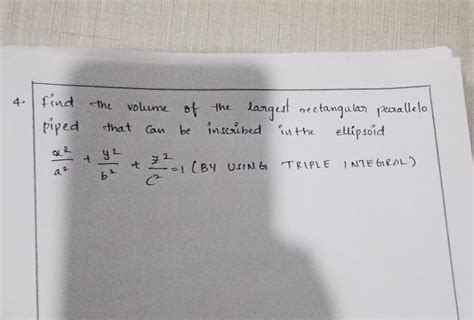 4. find the volume of the largest rectangular parallelo
piped that can be inscribed in the ellipsoid
x²/a² + y²/b² + z²/c² = 1 (BY USING TRIPLE INTEGRAL)